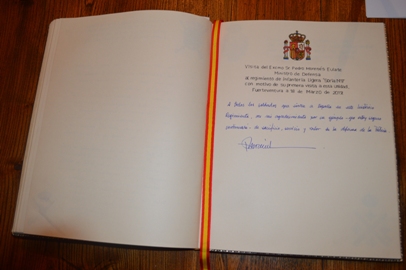 Visita del Excmo Sr Pedro Morenés Eulate
Ministro de Defensa
al regimiento de Infantería Ligera "Soria nº9"
con motivo de su primera visita a esta Unidad
Fuerteventura a 18 de Marzo de
A todos los soldados que sirven a España en este
Regimiento, en mi agradecimiento por su ejemplo
de sacrificio, servicio y valor de la defensa de la Patria.